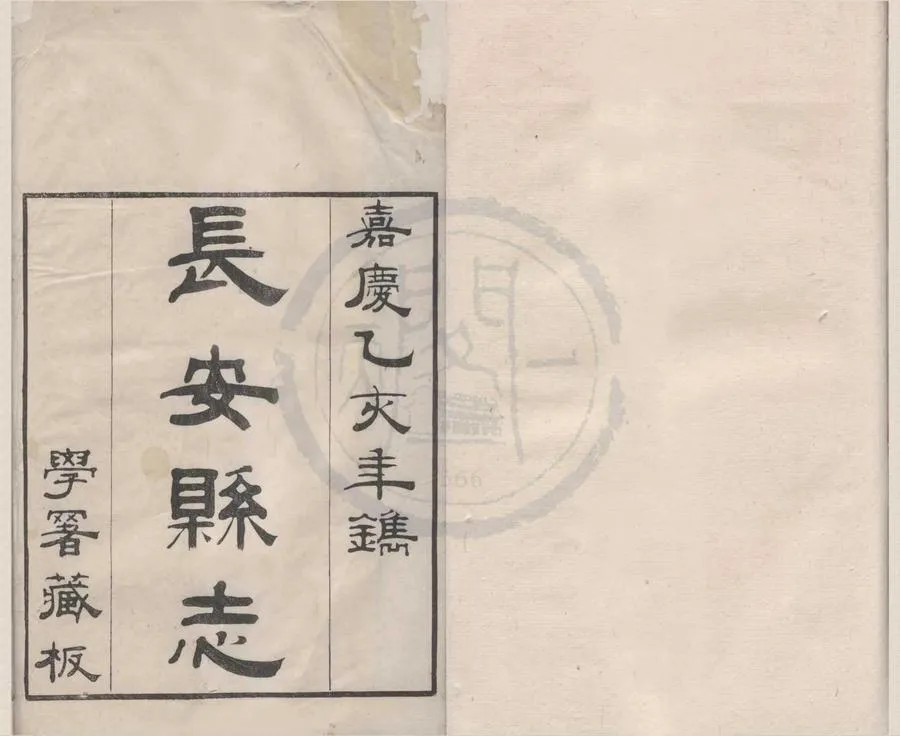 嘉慶乙亥年鐫
長安縣志
學署藏板